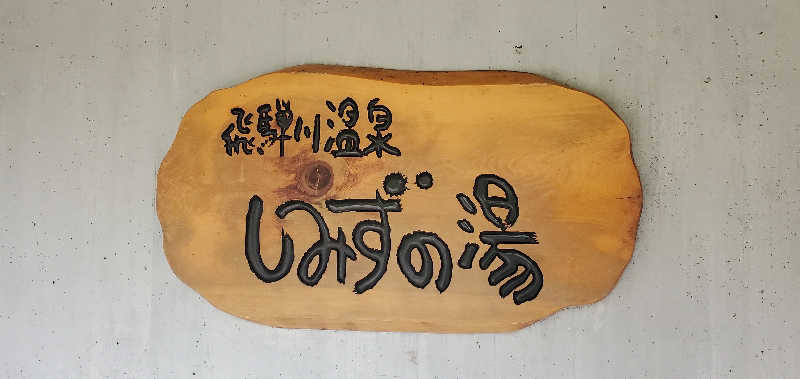 飛騨川温泉
しみずの湯